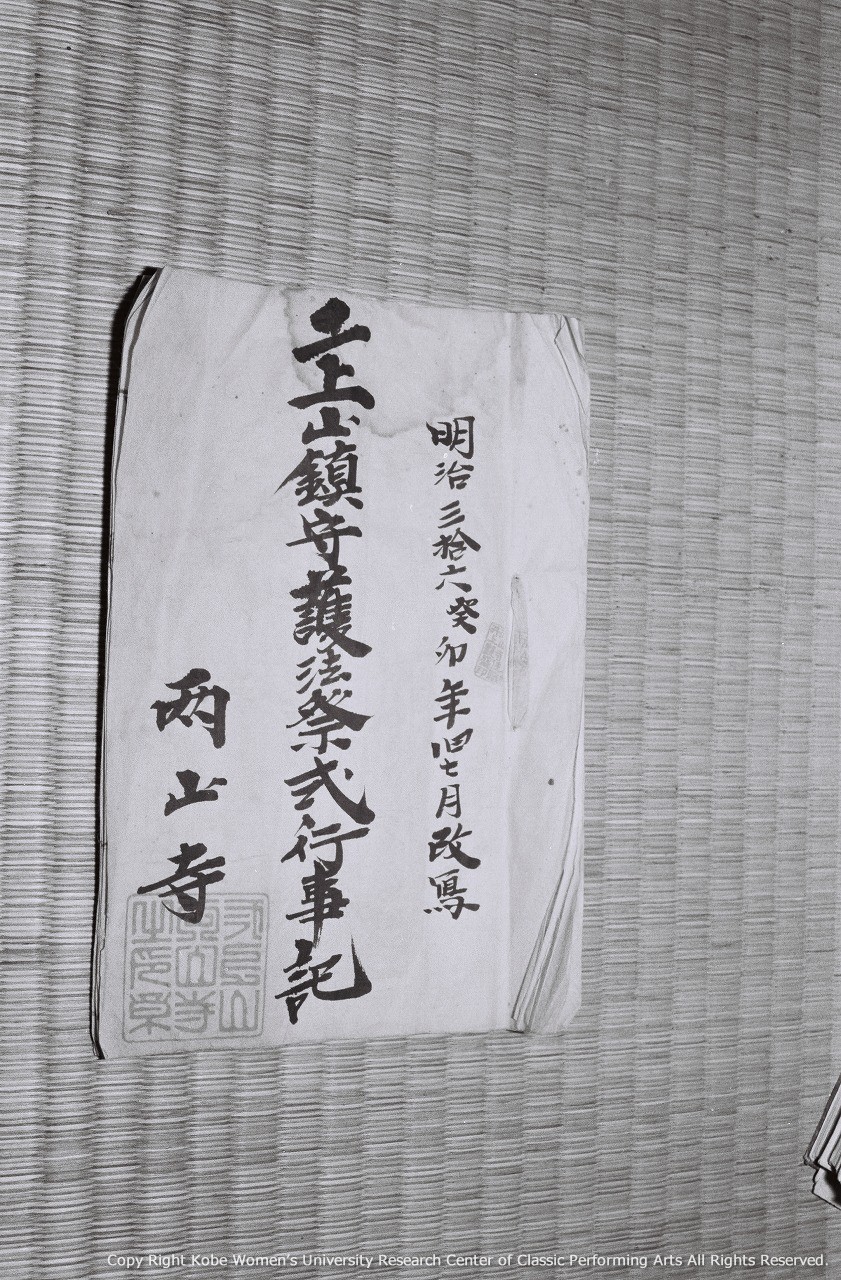 明治三拾六癸卯年四七月改寫
二上山鎮守護法祭式行事記
两山寺
Copy Right Kobe Women's University Research Center of Classic Performing Arts All Rights Reserved.